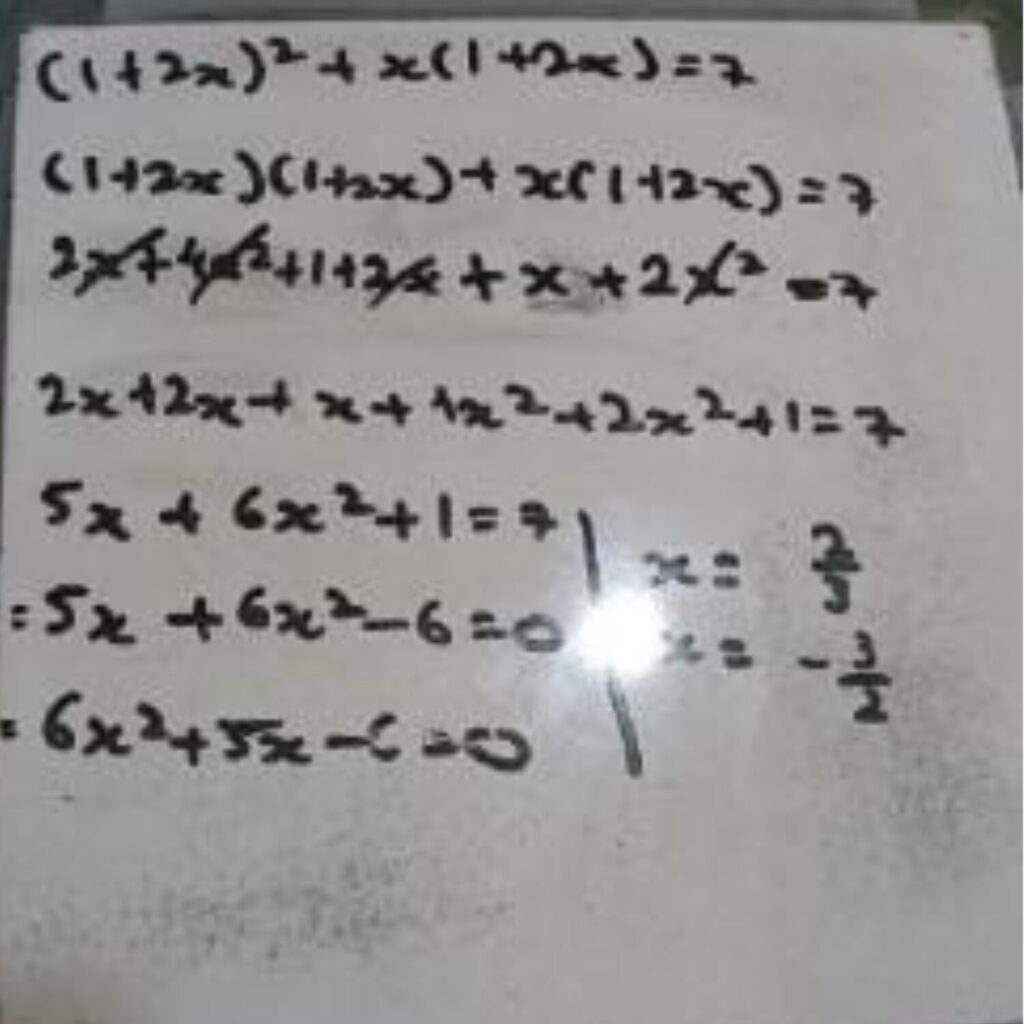 (1+2x)²+x(1+2x)=7
(1+2x)(1+2x)+x(1+2x)=7
2x+4x²+1+2x+x+2x²=7
2x+2x+x+4x²+2x²+1=7
5x+6x²+1=7
=5x+6x²-6=0
=6x²+5x-6=0
x=2/3
x=-3/2